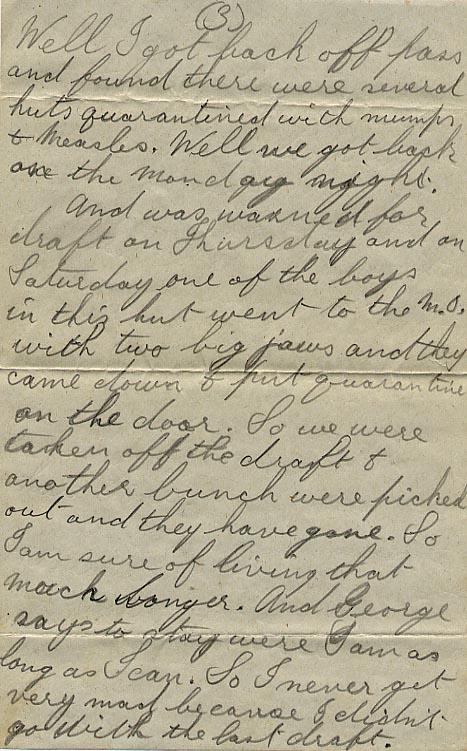 (3)
Well I got back off pass
and found there were several
huts quarantined with mumps
& Measles. Well we got back
one the monday night.
And was warned for
draft on Thursday and on
Saturday one of the boys
in this hut went to the M.O.
with two big jaws and they
came down & put quarantine
on the door. So we were
taken off the draft &
another bunch were picked
out and they have gone. So
I am sure of living that
much longer. And George
says to stay were I am as
long as I can. So I never get
very mad because I didn't
go with the last draft.